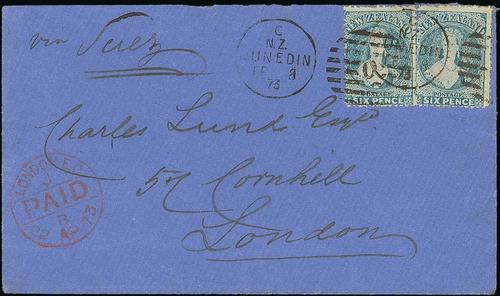 via Suez
C
N.Z.
DUNEDIN
FE 8
73
NEW ZEALAND
POSTAGE
SIX PENCE
NEW ZEALAND
POSTAGE
SIX PENCE
N.Z.
73
Charles Lund Esqre
57 Cornhill
London
LONDON E.C.
PAID
AP 73